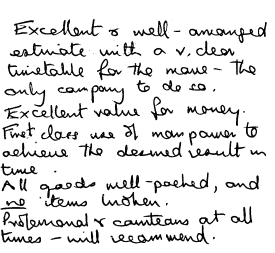 Excellent & well-arranged
estimate with a v. clear
timetable for the move - the
only company to do so.
Excellent value for money.
First class use of man power to
achieve the desired result in
time.
All goods well-packed, and
no items broken.
Professional & courteous at all
times - will recommend.